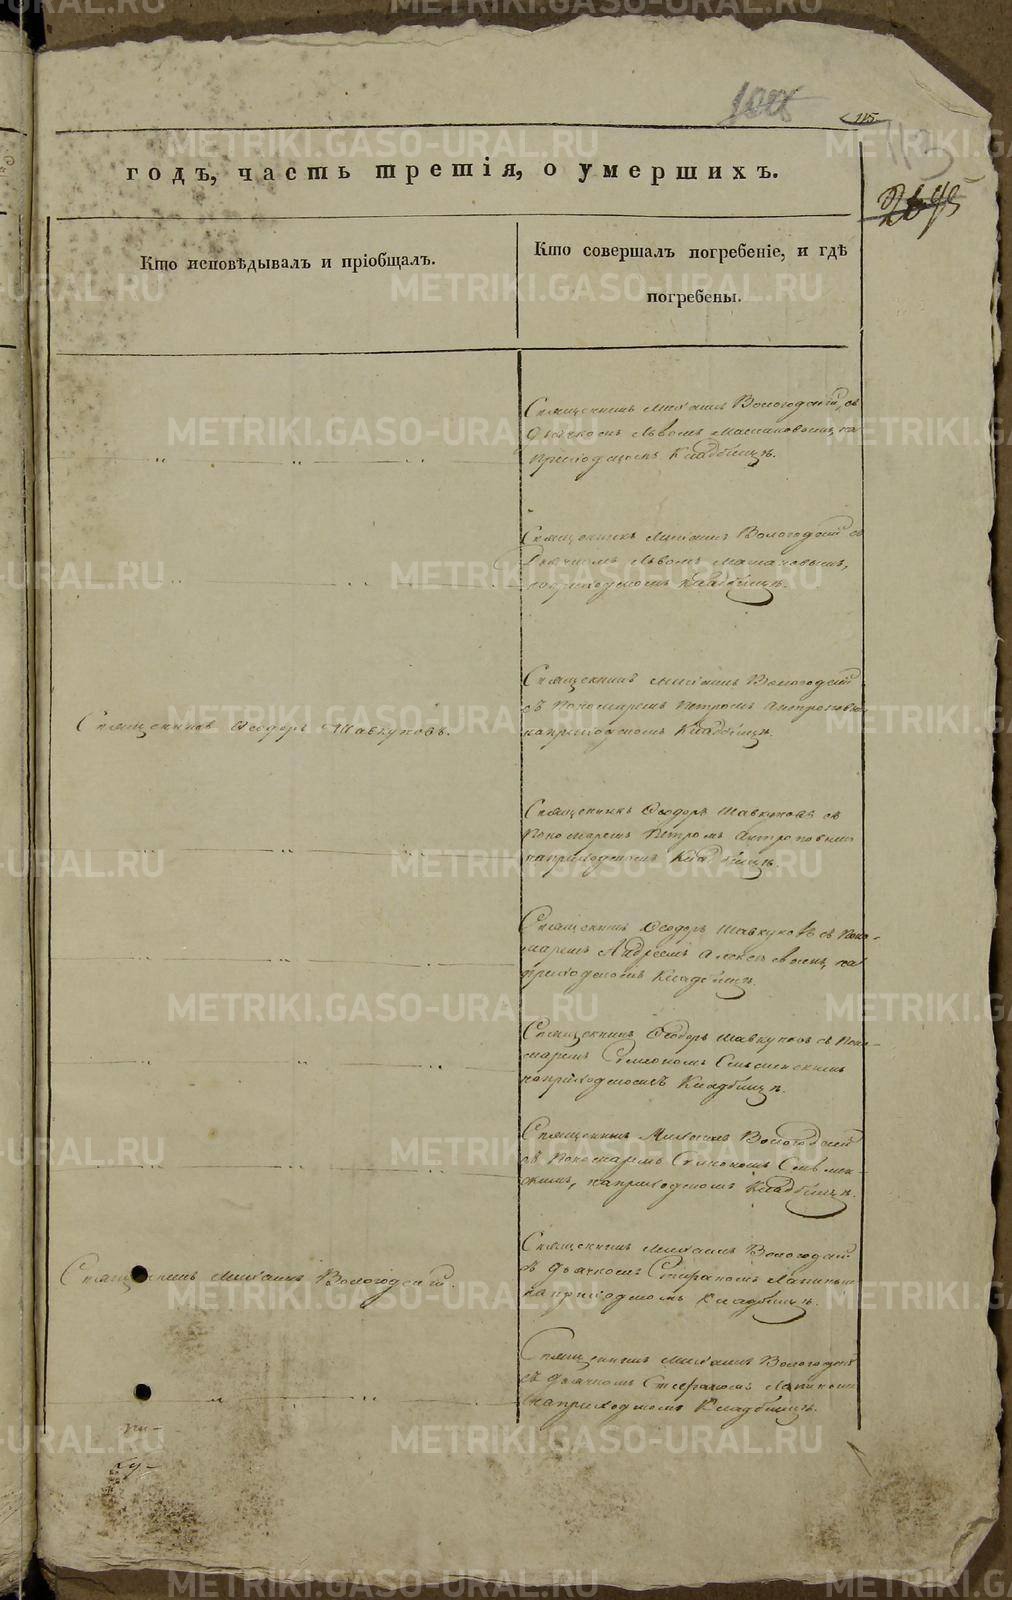 115
113
годъ, часть третія, о умершихъ.
Кто исповѣдывалъ и пріобщалъ.
Кто совершалъ погребеніе, и гдѣ
погребены.
Священникъ Михаилъ Вологодскій съ
дьячкомъ Львомъ на
приходскомъ Кладбищѣ.
Священникъ Михаилъ Вологодскій съ
дьячкомъ Львомъ
на приходскомъ Кладбищѣ.
Священникъ Ѳеодоръ Шавкуновъ.
Священникъ Михаилъ Вологодскій
съ Пономаремъ Петромъ Антроповымъ
на приходскомъ Кладбищѣ.
Священникъ Ѳеодоръ Шавкуновъ съ
Пономаремъ Петромъ Антроповымъ
на приходскомъ Кладбищѣ.
Священникъ Ѳеодоръ Шавкуновъ съ Поно-
маремъ Андреемъ на
приходскомъ Кладбищѣ.
Священникъ Ѳеодоръ Шавкуновъ съ Поно-
маремъ Симеономъ
на приходскомъ Кладбищѣ.
Священникъ Михаилъ Вологодскій
съ Пономаремъ Симеономъ
на приходскомъ Кладбищѣ.
Священникъ Михаилъ Вологодскій.
Священникъ Михаилъ Вологодскій
съ дьячкомъ Стефаномъ Лапинымъ
на приходскомъ Кладбищѣ.
Священникъ Михаилъ Вологодскій
съ дьячкомъ Стефаномъ Лапинымъ
на приходскомъ Кладбищѣ.
METRIKI.GASO-URAL.RU